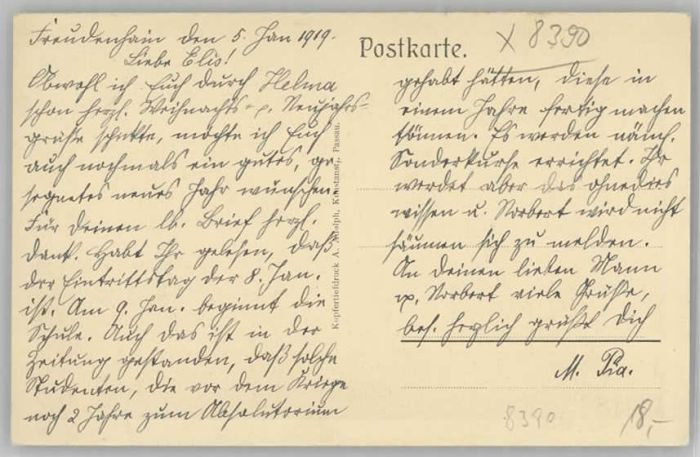 Freudenhain den 5. Jan 1919.
Liebe Elis!
Obwohl ich Euch durch Helma
schon herzl. Weihnachts- u. Neujahrs-
grüße schickte, möchte ich Euch
auch nochmals ein gutes, ge-
segnetes neues Jahr wünschen.
Für deinen lb. Brief herzl.
Dank. Habt Ihr gelesen, daß
der Eintrittstag der 8. Jan.
ist. Am 9. Jan. beginnt die
Schule. Auch das ist in der
Zeitung gestanden, daß solche
Studenten, die vor dem Kriege
noch 2 Jahre zum Absolutorium
Postkarte.
X 8390
gehabt hätten, diese in
einem Jahre fertig machen
können. Es werden näml.
Sonderkurse errichtet. Ihr
werdet aber das ohnedies
wissen u. Norbert wird nicht
säumen sich zu melden.
An deinen lieben Mann
u. Norbert viele Grüße,
bes. herzlich grüßt Dich
M. Pia.
Kupfertiefdruck A. Adolph, Kunstanst., Passau.
8390
18,-